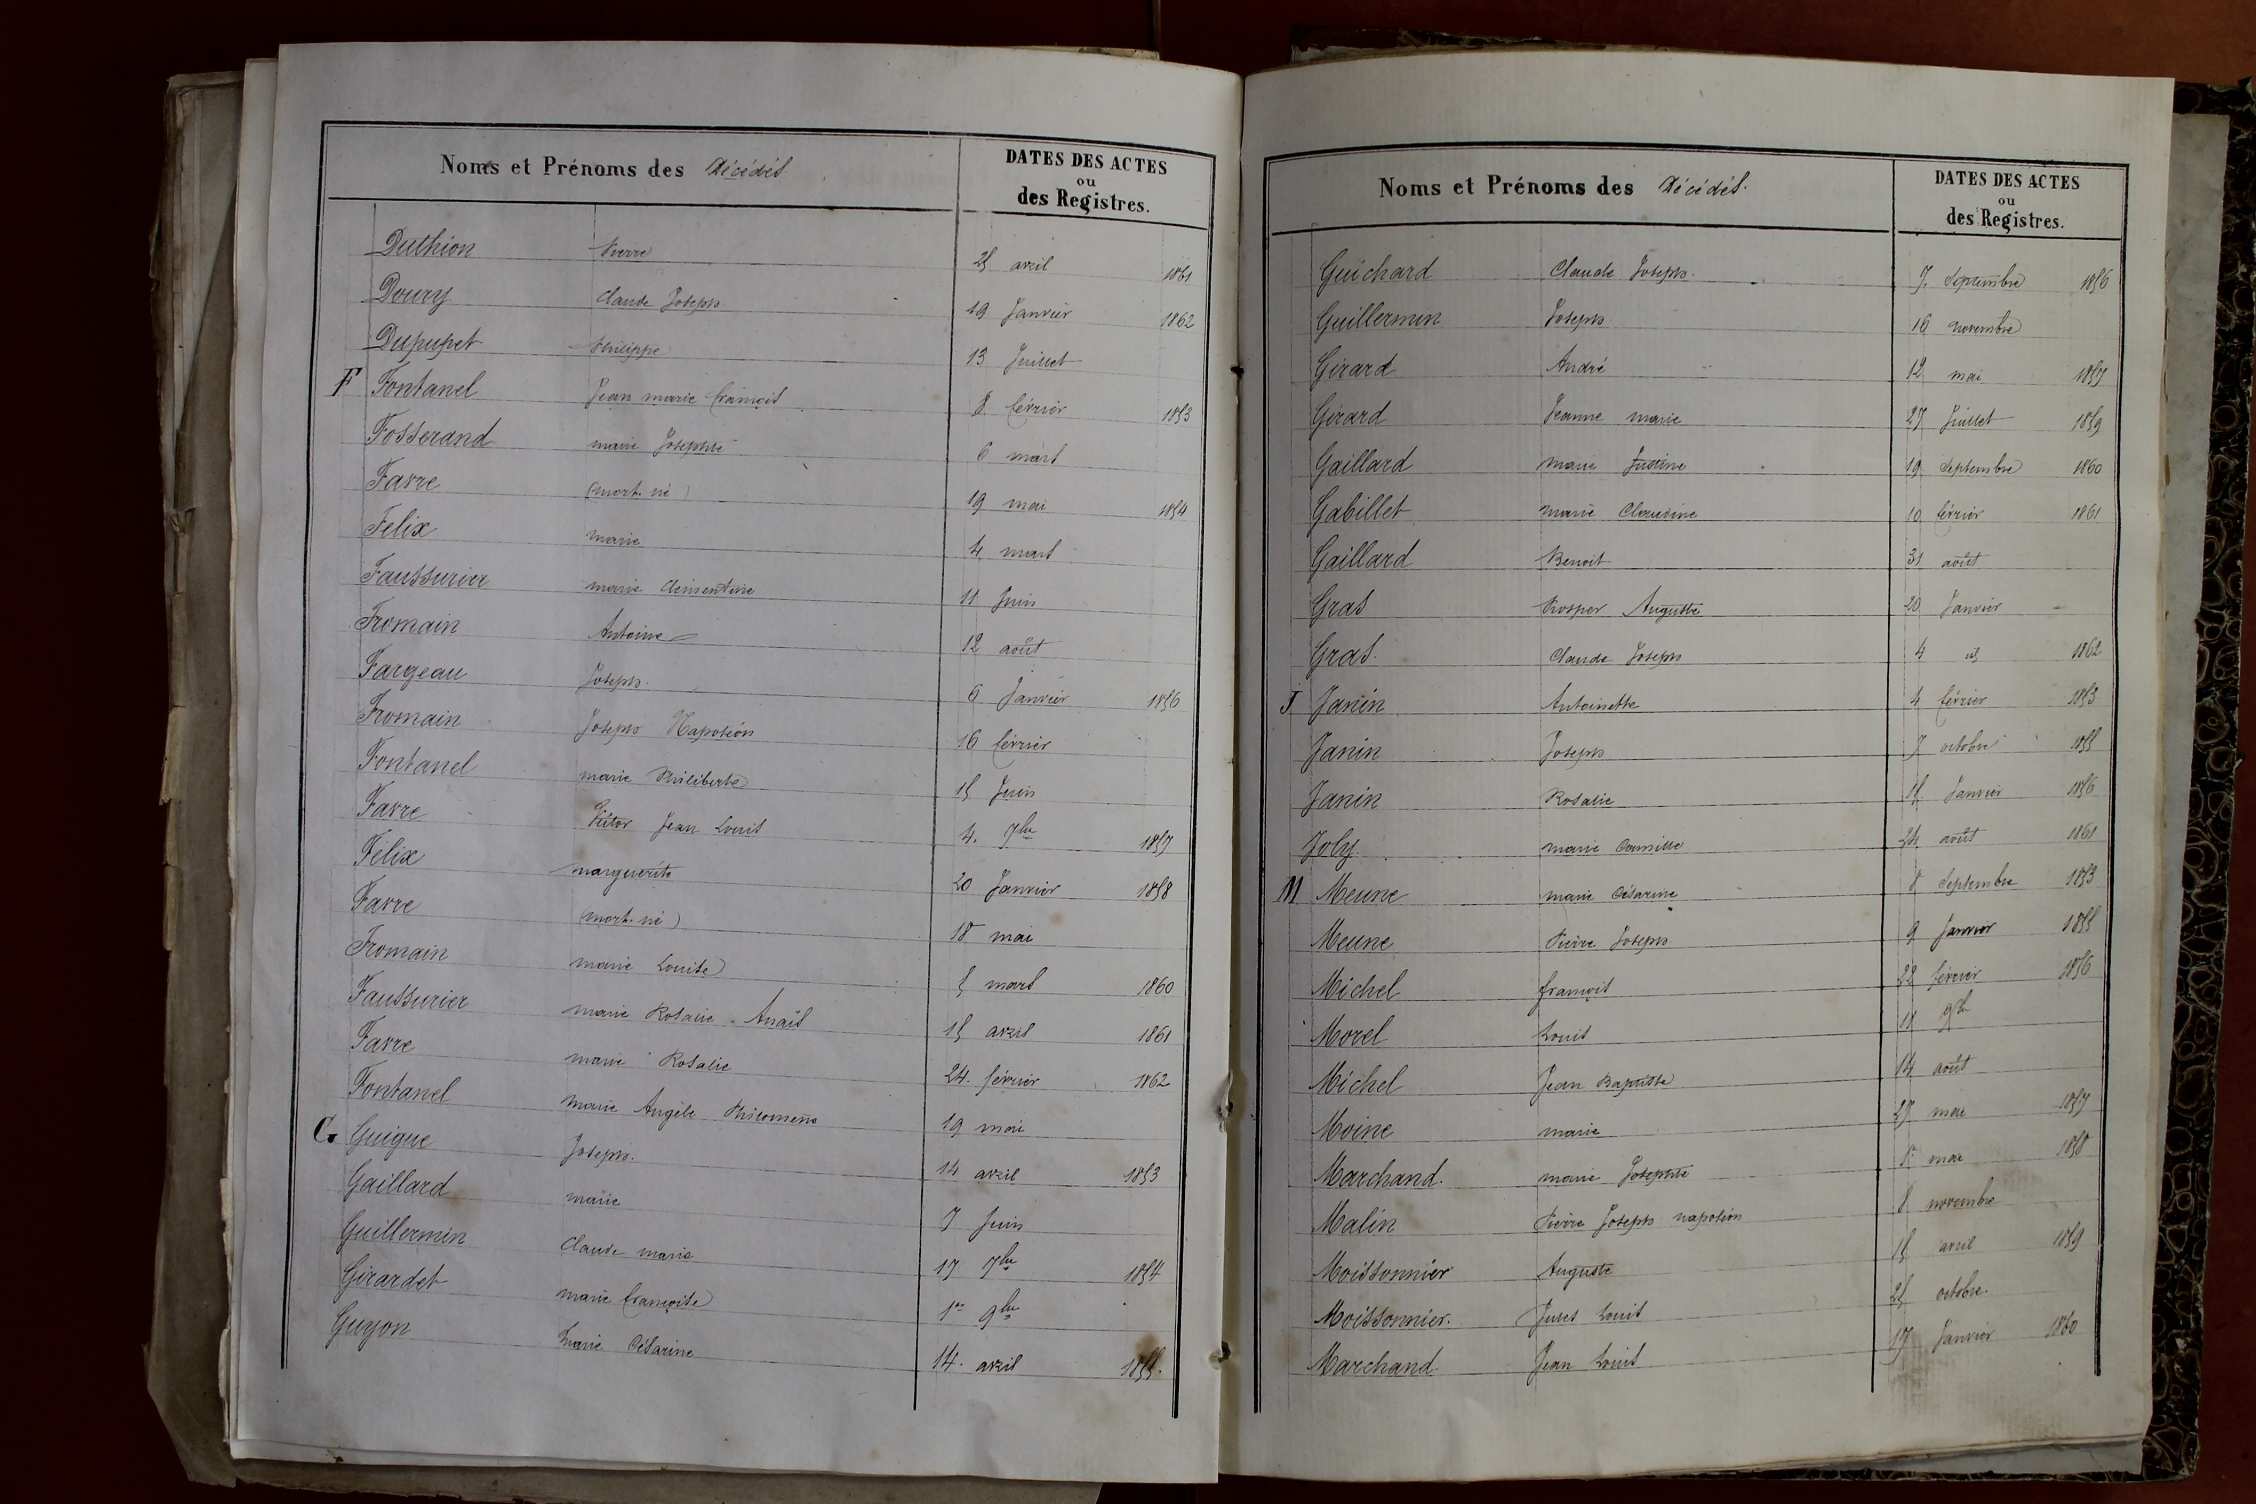 Noms et Prénoms des Décédés.
DATES DES ACTES
ou
des Registres.
Duthion Pierre 25 avril 1861
Doury Claude Joseph 19 Janvier 1862
Dupupet Philippe 13 Juillet
F Fontanel Jean marie françois 8 février 1853
Fosserand marie Josephte 6 mars
Favre (mort-né) 19 mai 1854
Felix marie 4 mars
Faussurier marie Clémentine 11 Juin
Fromain Antoine 12 août
Fargeau Joseph. 6 Janvier 1856
Fromain Joseph Napoléon 16 février
Fontanel marie Philiberte 15 Juin
Favre Victor Jean Louis 4. 7bre 1857
Félix marguerite 20 Janvier 1858
Favre (mort-né) 18 mai
Fromain marie Louise 5 mars 1860
Faussurier marie Rosalie Anaïs 15 avril 1861
Favre marie Rosalie 24. février 1862
Fontanel marie Angèle Philomène 19 mai
G Guigue Joseph. 14 avril 1853
Gaillard marie 7 Juin
Guillermin Claude marie 17 7bre 1854
Girardet marie françoise 1er 9bre
Guyon marie Césarine 14. avril 1855.
Noms et Prénoms des Décédés.
DATES DES ACTES
ou
des Registres.
Guichard Claude Joseph. 7. Septembre 1856
Guillermin Joseph 16 novembre
Girard André 12 mai 1857
Girard Jeanne marie 27 Juillet 1859
Gaillard marie Justine 19 Septembre 1860
Gabillet marie Claudine 10 février 1861
Gaillard Benoit 31 août
Gras Prosper Auguste 20 Janvier
Gras. Claude Joseph 4 id 1862
J Janin Antoinette 4 février 1853
Janin Joseph 7 octobre 1855
Janin Rosalie 15 Janvier 1856
Joly marie Camille 24 août 1861
M Meune marie Césarine 8 Septembre 1853
Meune Pierre Joseph 9 Janvier 1855
Michel françois 22 février 1856
Morel Louis 11 9bre
Michel Jean Baptiste 14 août
Moine marie 27 mai 1857
Marchand. marie Josephte 8. mai 1858
Malin Pierre Joseph napoléon 8 novembre
Moissonnier Auguste 15 avril 1859
Moissonnier. Jules Louis 25 octobre.
Marchand Jean Louis 17 Janvier 1860